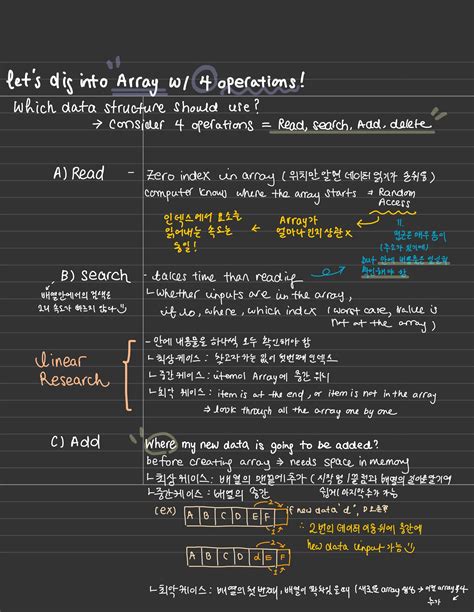 let's dig into "Array" w/ 4 operations!
Which data structure should use?
→ Consider 4 operations = Read, search, Add, delete
A) Read - Zero index in array (위치만 알면 데이터 읽기가 쉬워짐)
computer knows where the array starts → Random Access
인덱스에서 요소를 읽어내는 속도는 동일!
← Array가 얼마나 긴지 상관 X
B) Search - takes time than reading
배열안에서의 검색은
└ Whether inputs are in the array,
if so, where, which index (worst case, value is not at the array)
linear Research
- 안에 내용물을 하나씩 모두 확인해야 함
└ 최상 케이스 : 찾고자 하는 값이 첫번째 인덱스
└ 중간 케이스 : item이 Array에 중간 위치
└ 최악 케이스 : item is at the end, or item is not in the array
⇒ look through all the array one by one
C) Add Where my new data is going to be added?
before creating array → needs space in memory
└ 최상 케이스 : 배열의 맨끝에 추가
쉽게 마지막 추가 가능
└ 중간 케이스 : 배열의 중간
(ex) A B C D E F if new data 'd',
2
1
∴ 2번의 데이터 이동 뒤에 중간에
new data input 가능
A B C d E F
2
1
└ 최악 케이스 : 배열의 첫번째,